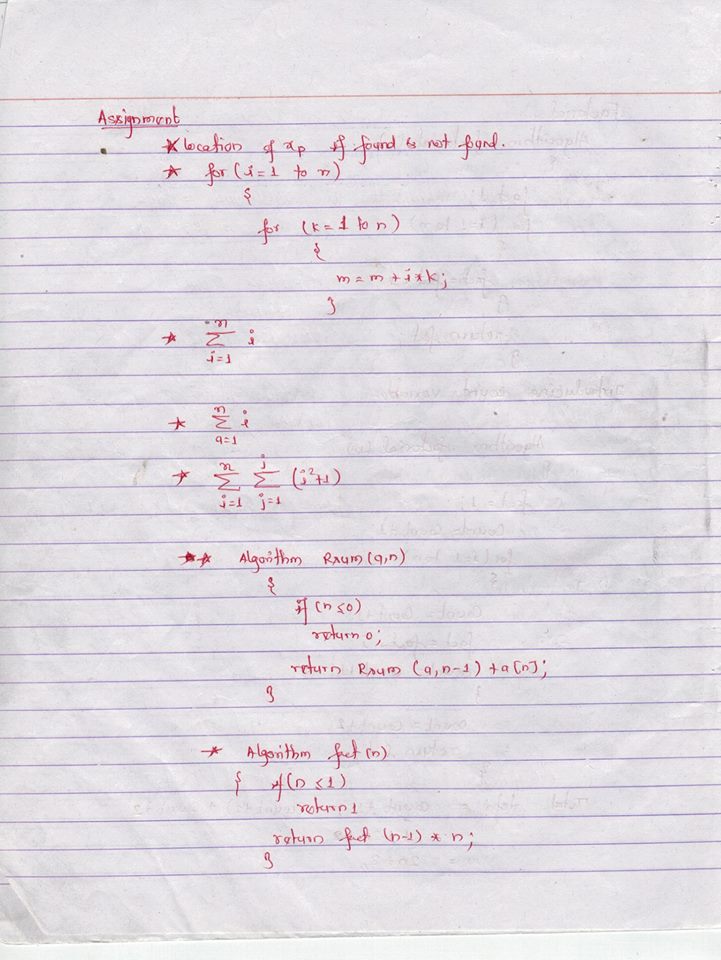 Assignment
* location of xp if found & not found.
* for (i=1 to n)
{
for (k=1 to n)
{
m=m+i*k;
}
* n∑i=1 i
* n∑a=1 i
* n∑i=1 j∑j=1 (i²+1)
** Algorithm Rsum(a,n)
{
if (n≤0)
return 0;
return Rsum (a,n-1) +a[n];
}
* Algorithm fact(n)
{ if(n ≤1)
return 1
return fact (n-1) * n;
}